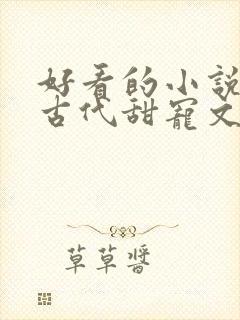 好看的小說
古代甜寵文
草草醬